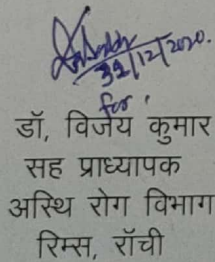 32/12/2020.
for
डॉ, विजय कुमार
सह प्राध्यापक
अस्थि रोग विभाग
रिम्स, रॉची